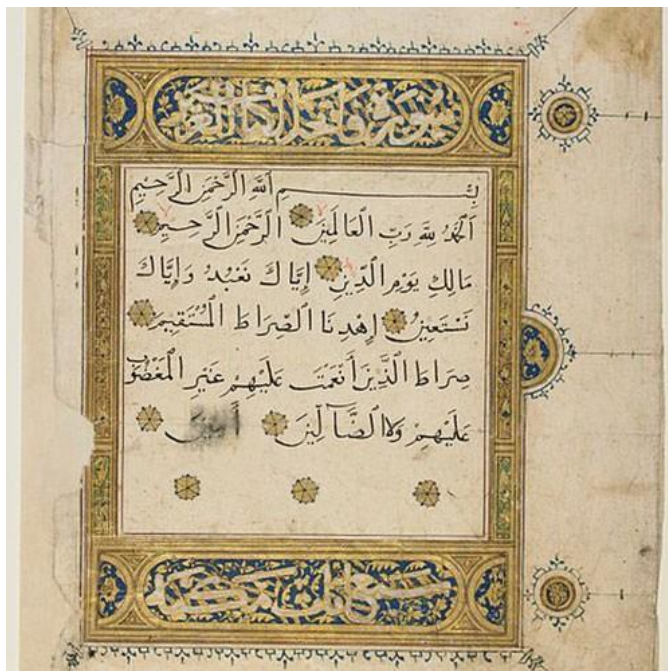 سورة فاتحة الكتاب
بِسْمِ اللَّهِ الرَّحْمَنِ الرَّحِيمِ
اَلْحَمْدُ لِلَّهِ رَبِّ الْعَالَمِينَ الرَّحْمَنِ الرَّحِيمِ
مَالِكِ يَوْمِ الدِّينِ إِيَّاكَ نَعْبُدُ وَإِيَّاكَ
نَسْتَعِينُ اِهْدِنَا الصِّرَاطَ الْمُسْتَقِيمَ
صِرَاطَ الَّذِينَ أَنْعَمْتَ عَلَيْهِمْ غَيْرِ الْمَغْضُوبِ
عَلَيْهِمْ وَلَا الضَّآلِّينَ